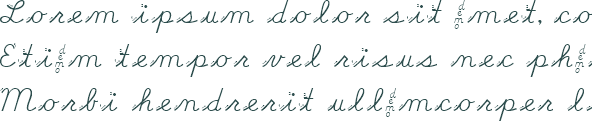 Lorem ipsum dolor sit amet, co
Etiam tempor vel risus nec pha
Morbi hendrerit ullamcorper l